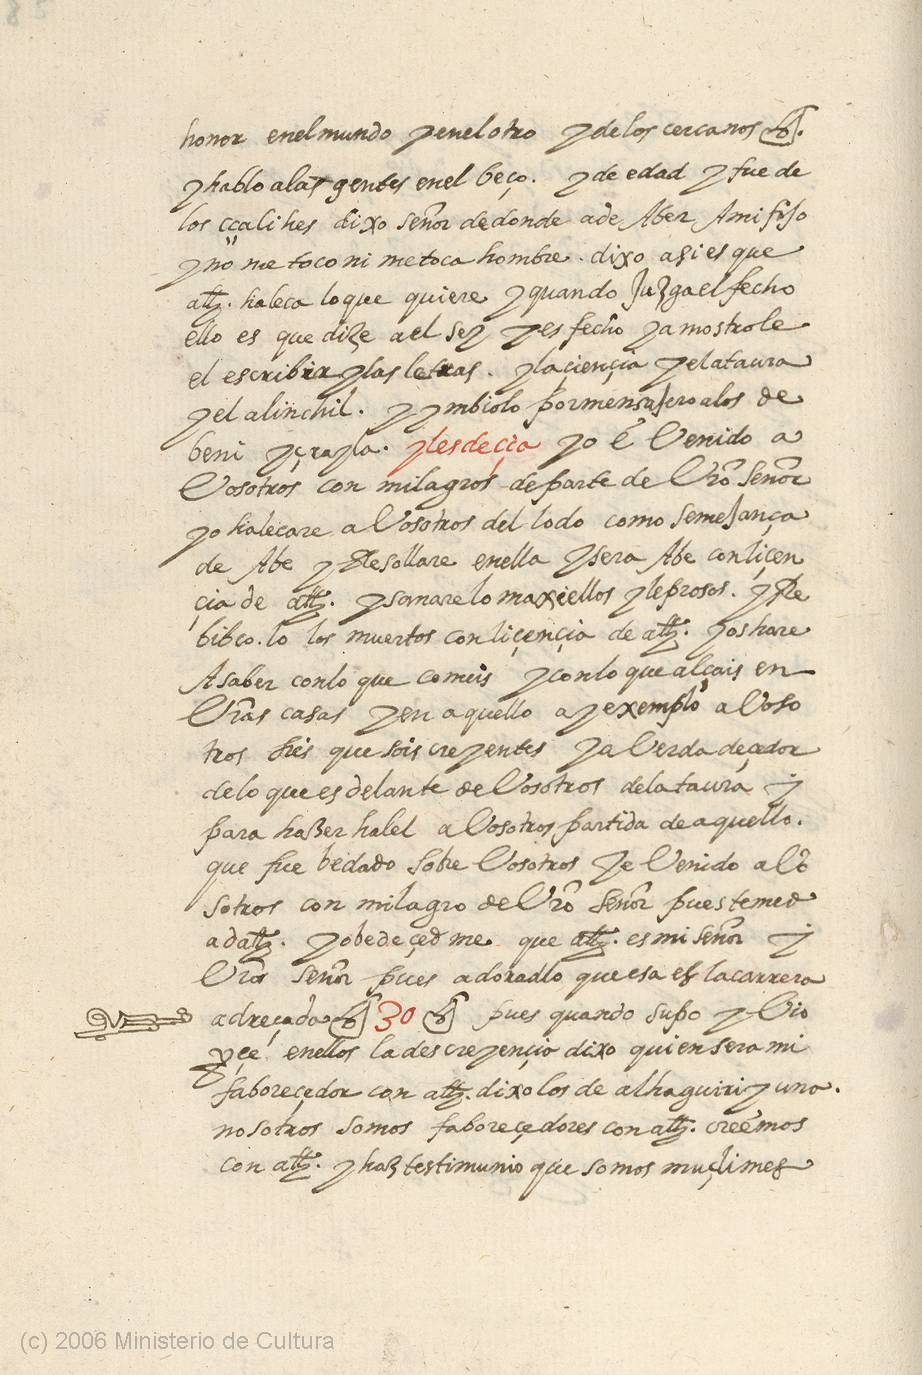 honor enel mundo y enel otro y delos cercanos
y hablo alas gentes enel beço. y de edad y fue de
los ccalihes dixo señor dedonde ade Aber Ami fijo
y no me toco ni me toca hombre. dixo asi es que
allh. haleca loque quiere y quando Juzga el fecho
ello es que dize a el sey y es fecho y amostrole
el escribir y las letras. y la çiençia y el ataura
y el alinchil. y ymbiolo por mensajero alos de
beni yçrayla. y les deçia yo é Venido a
Vosotros con milagros departe de Vro Señor
yo halecare a Vosotros del lodo como semejança
de Abe y Resollare enella y sera Abe conliçen
çia de allh. y sanare lo maxiellos y leprosos. y Re
bibco.lo los muertos conliçençia de allh. y os hare
A saber conlo que comeis y conlo que alçais en
Vras casas y en aquello ay exemplo a Voso
tros sies que sois creyentes y a Verdadeçedor
delo que es delante de Vosotros dela taura y
para hazer halel a Vosotros partida de aquello.
que fue bedado sobre Vosotros y e Venido a Vo
sotros con milagro de Vro señor pues temed
ad allh. y obedeçedme que allh. es mi señor y
Vro señor pues adoradlo que esa es la carrera
adreçada 30 pues quando supo y Vio
yçe enellos la descreyençia dixo quien sera mi
faboreçedor con allh. dixo los de alhaguiriyuna.
nosotros somos faboreçedores con allh. creemos
con allh. y haz testimunio que somos muçlimes
(c) 2006 Ministerio de Cultura